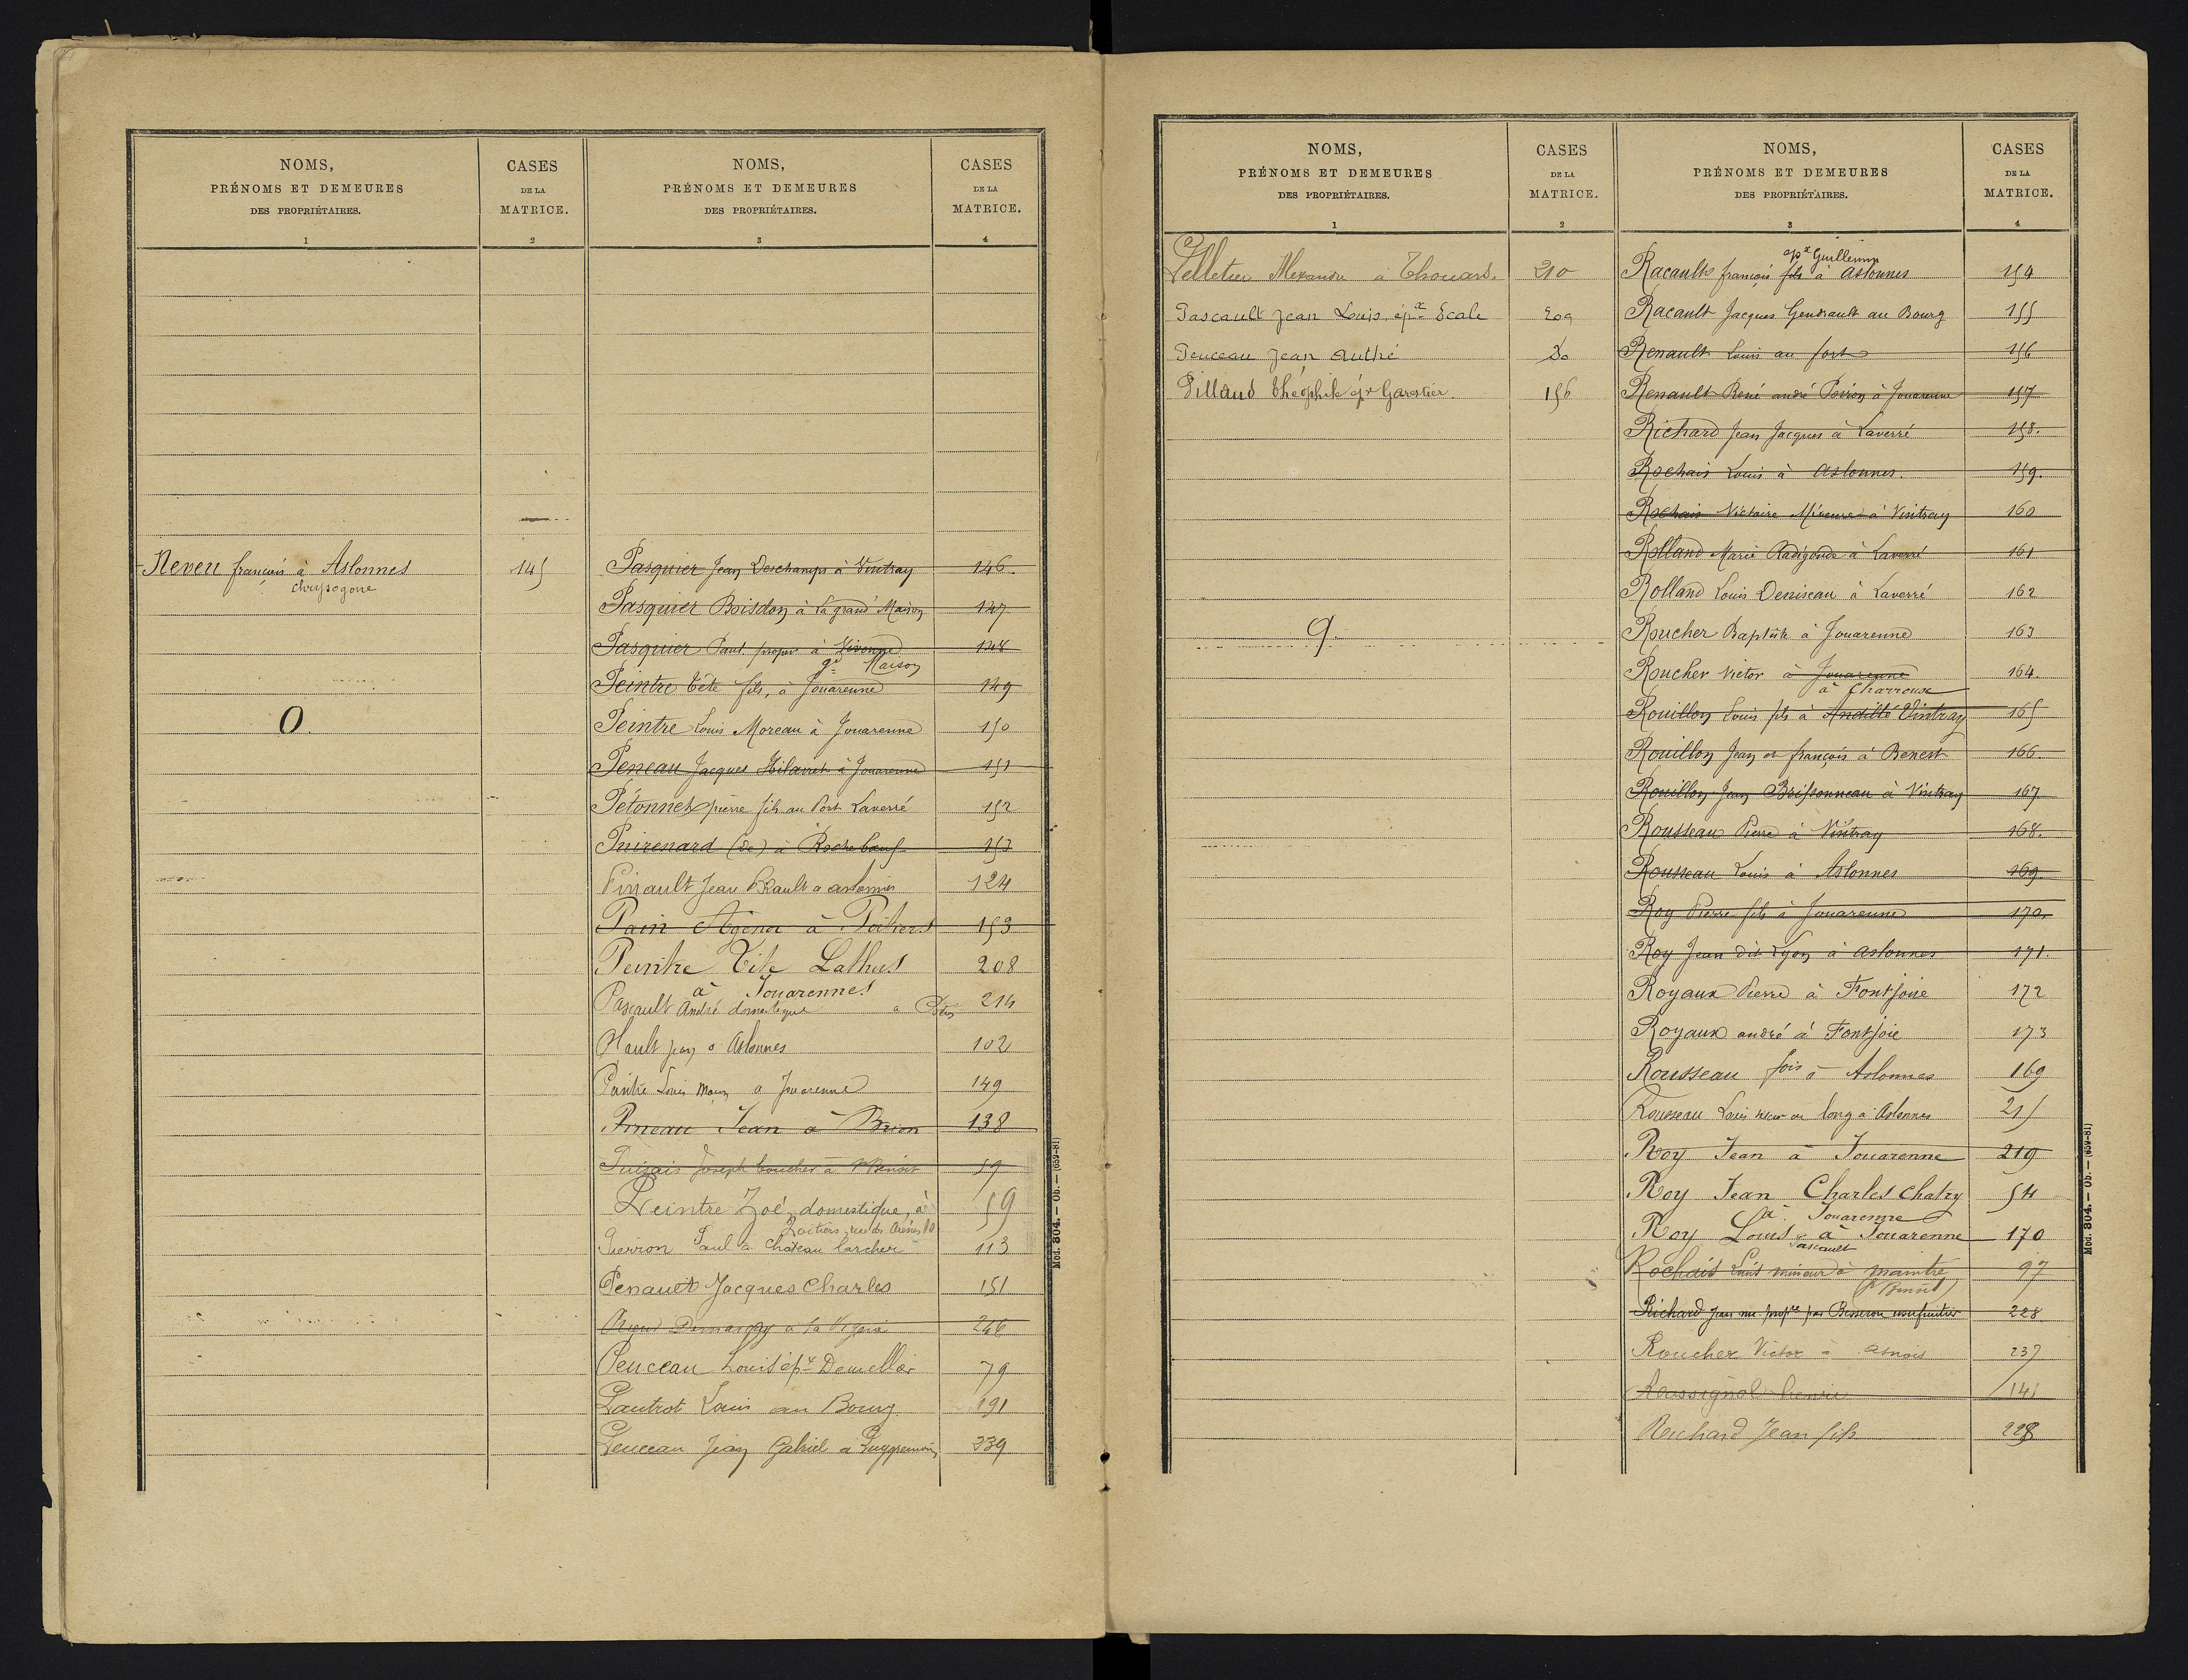 NOMS,
PRÉNOMS ET DEMEURES
DES PROPRIÉTAIRES.
1
CASES
DE LA
MATRICE.
2
NOMS,
PRÉNOMS ET DEMEURES
DES PROPRIÉTAIRES.
3
CASES
DE LA
MATRICE.
4
Neveu françois à Aslonnes 145
Chrysogone
O.
Pasquier Jean Deschamps à Vintray 146
Pasquier Boisdon à la grand' Maison 147
Pasquier Paul propre à Vivonne 148
gde Maison
Peintre Tite fils, à Jouarenne 149
Peintre Louis Moreau à Jouarenne 150
Peneau Jacques Hilairet à Jouarenne 151
Pétonnet pierre fils au Port Laverré 152
Puirenard (de) à Rochebœuf 153
Pinault Jean Brault a aslonnes 124
Pain Agénor à Poitiers 153
Peintre Tite Lathus 208
à Jouarennes
Pascault André domestique 214
Plault jean a Aslonnes 102
Peintre Louis a Jouarenne 149
Pineau Jean à Brion 138
Puizais Joseph boucher à St Benoit 59
Peintre Zoé, domestique, à 59
Poitiers, rue des Arènes 10
Pierron Paul à Château larcher 113
Penault Jacques Charles 151
à la Vigerie 246
Peuceau Louis épx Demellier 79
Pautrot Louis au Bourg 191
Peuceau Jean Gabriel a 239
Mod. 804. — Ob. — (659-81)
NOMS,
PRÉNOMS ET DEMEURES
DES PROPRIÉTAIRES.
1
CASES
DE LA
MATRICE.
2
NOMS,
PRÉNOMS ET DEMEURES
DES PROPRIÉTAIRES.
3
CASES
DE LA
MATRICE.
4
Pelletier Alexandre à Thouars. 210
Pascault Jean Louis, épx Ecale 209
Peuceau Jean Authé 30
Pillaud théophile épx Garestier. 156
Q.
épx Guillemin
Racault françois fils à Aslonnes 154
Racault Jacques Gendrault au Bourg 155
Renault Louis au fort 156
Renault René andré Poiron à Jouarenne 157
Richard Jean Jacques à Laverré 158.
Rochais Louis à Aslonnes. 159.
Rochais Victoire Mineure à Vintray 160
Rolland Marie Radégonde à Laverré 161
Rolland Louis Deniseau à Laverré 162
Roucher Baptiste à Jouarenne 163
Roucher Victor à Jouarenne 164.
à Charrouse
Rouillon Louis fils à Andillé Vintray 165
Rouillon Jean et françois à Benest 166.
Rouillon Jean Brissonneau à Vintray 167
Rousseau Pierre à Vintray 168.
Rousseau Louis à Aslonnes 169
Roy Pierre fils à Jouarenne 170.
Roy Jean dit Lyon à Aslonnes 171.
Royaux Pierre à Fontjoie 172
Royaux andré à Fontjoie 173
Rousseau fois à Aslonnes 169
Rousseau Louis long a Aslonnes 215
Roy Jean à Jouarenne 219
Roy Jean Charles Chatry 54
à Jouarenne
Roy Louis à Jouarenne 170
Pascault
Rochais Louis mineur à 97
(St Benoît)
Richard Jean nu-propre par Besseron usufruitier 228
Roucher Victor à asnois 237
Rossignol henri 141
Richard Jean fils 228
Mod. 804. — Ob. — (659-81)